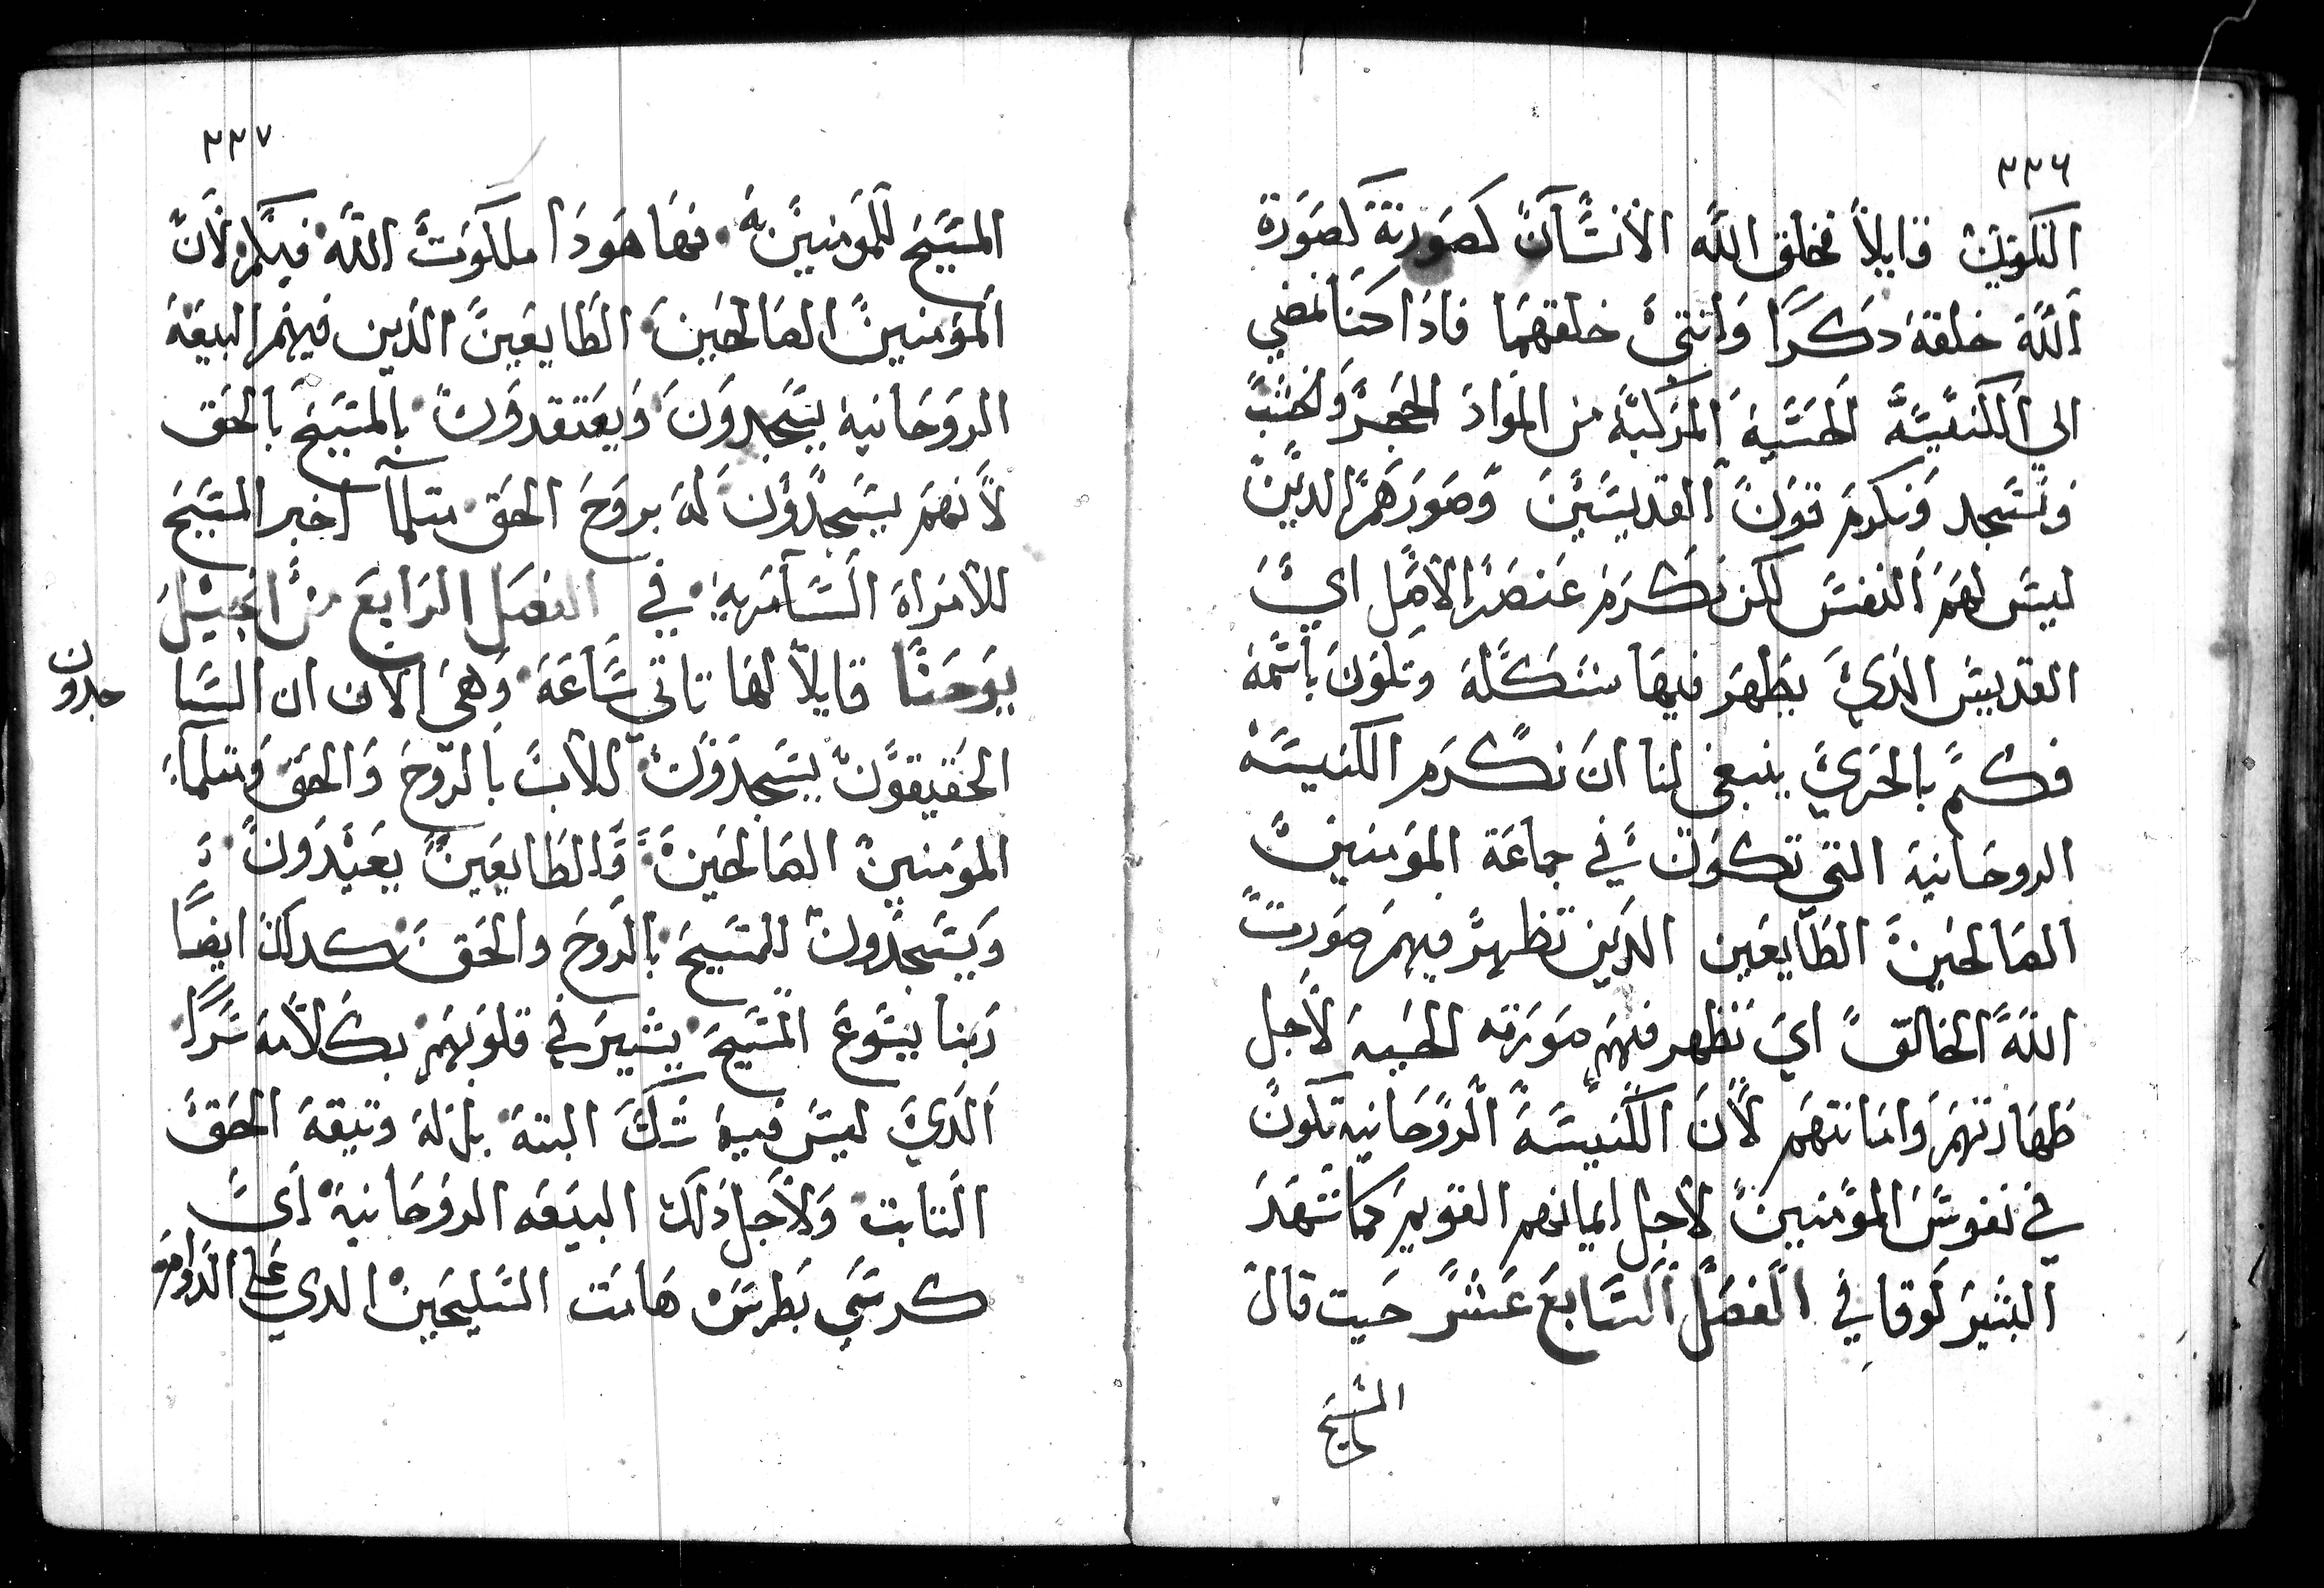 ٣٣٦
التكوين قايلاً فخلق الله الانسان كصورته كصورة
الله خلقه دكرا وانتى خلقهما فادا كنا نمضي
الى الكنيسة الحسية المركبة من المواد الحجر والخشب
ونسجد ونكرم قون القديسين وصورهم الدين
ليس لهم النفس لكن نكرم عنصر الاصل اي
القديس الدي يظهر فيها شكله وتلون باسمه
فكم بالحري ينبغي لنا ان نكرم الكنيسة
الروحانية التي تكون في جماعة المومنين
الصالحين الطايعين الدين تظهر فيهم صورت
الله الخالق اي تظهر فيهم صورته الحسية لاجل
طهارتهم وامانتهم لان الكنيسة الروحانية تكون
في نفوس المومنين لاجل ايمانهم القويم كما شهد
البشير لوقا في الفصل السابع عشر حيت قال
المسيح
٣٣٧
المسيح للمومنين به فها هودا ملكوت الله فيكم لان
المومنين الصالحين الطايعين الدين فيهم البيعة
الروحانية يسجدون ويعتقدون بالمسيح بالحق
لانهم يسجدون له بروح الحق متلما اخبر المسيح
للامراة السامرية في الفصل الرابع من انجيل
يوحنا قايلاً لها تاتي ساعة وهي الان ان السا
جدون
الحقيقون يسجدون للاب بالروح والحق ومتلما
المومنين الصالحين والطايعين يعبدون
ويسجدون للمسيح بالروح والحق كدلك ايضاً
ربنا يسوع المسيح يشير في قلوبهم بكلامه سراً
الدي ليس فيه شك البتة بل له وتيقة الحق
التابت ولاجل دلك البيعه الروحانية اي
كرسي بطرس هامت السليحين الدي على الدوام